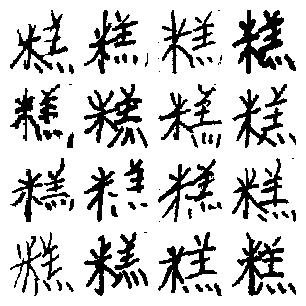 糕糕糕糕
糕糕糕糕
糕糕糕糕
糕糕糕糕